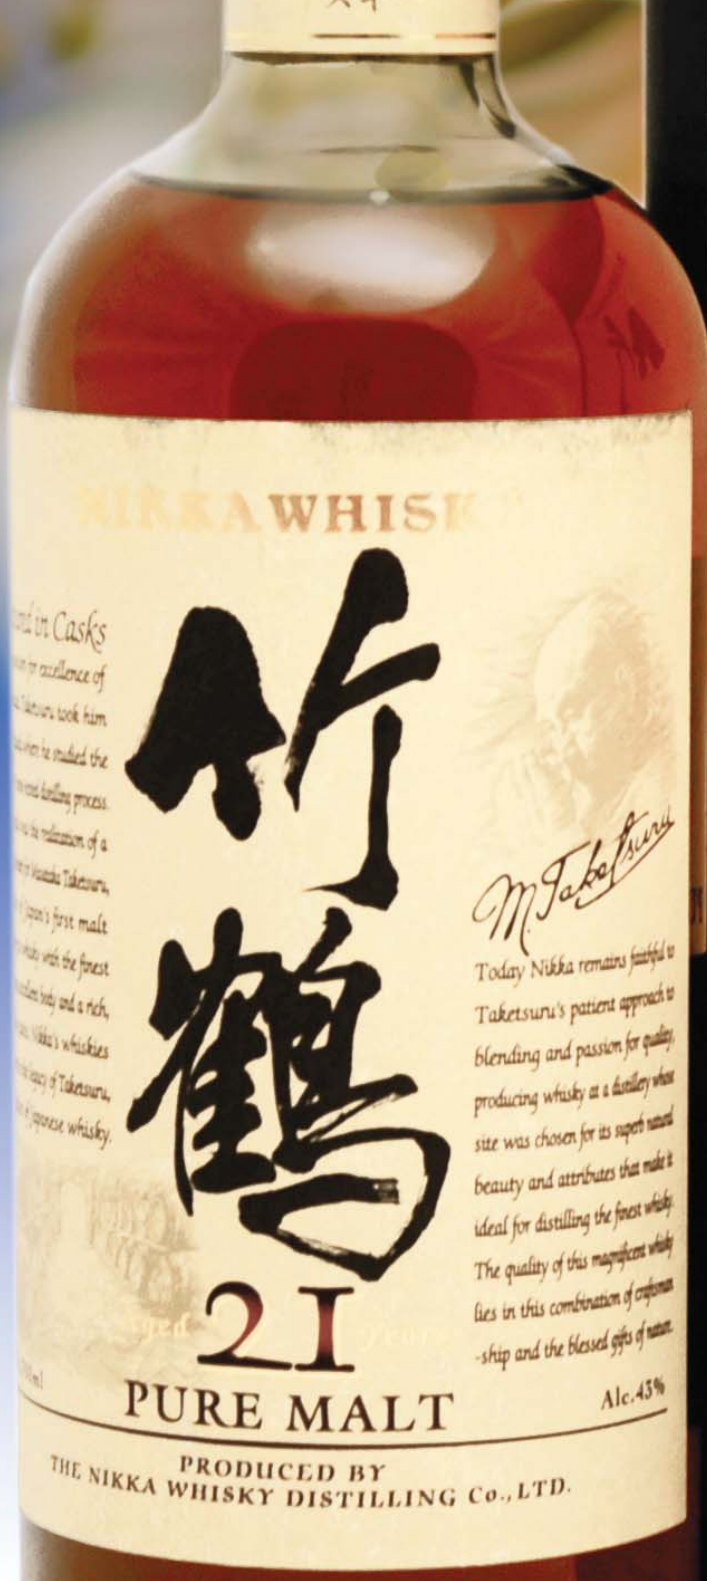 NIKKA WHISK
竹鶴
in Casks
for excellence of
took him
where he studied the
distilling process.
the realization of a
Masataka Taketsuru,
Japan's first malt
whisky with the finest
body and a rich,
Nikka's whiskies
legacy of Taketsuru,
of Japanese whisky.
M. Taketsuru
Today Nikka remains faithful to
Taketsuru's patient approach to
blending and passion for quality,
producing whisky at a distillery whose
site was chosen for its superb natural
beauty and attributes that make it
ideal for distilling the finest whisky.
The quality of this magnificent whisky
lies in this combination of craftsman
-ship and the blessed gifts of nature.
Aged 21 Years
PURE MALT
Alc.43%
PRODUCED BY
THE NIKKA WHISKY DISTILLING Co.,LTD.